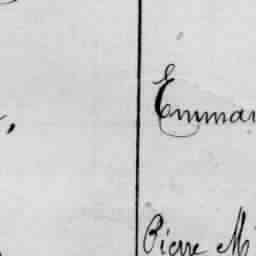 Emma
Pierre M